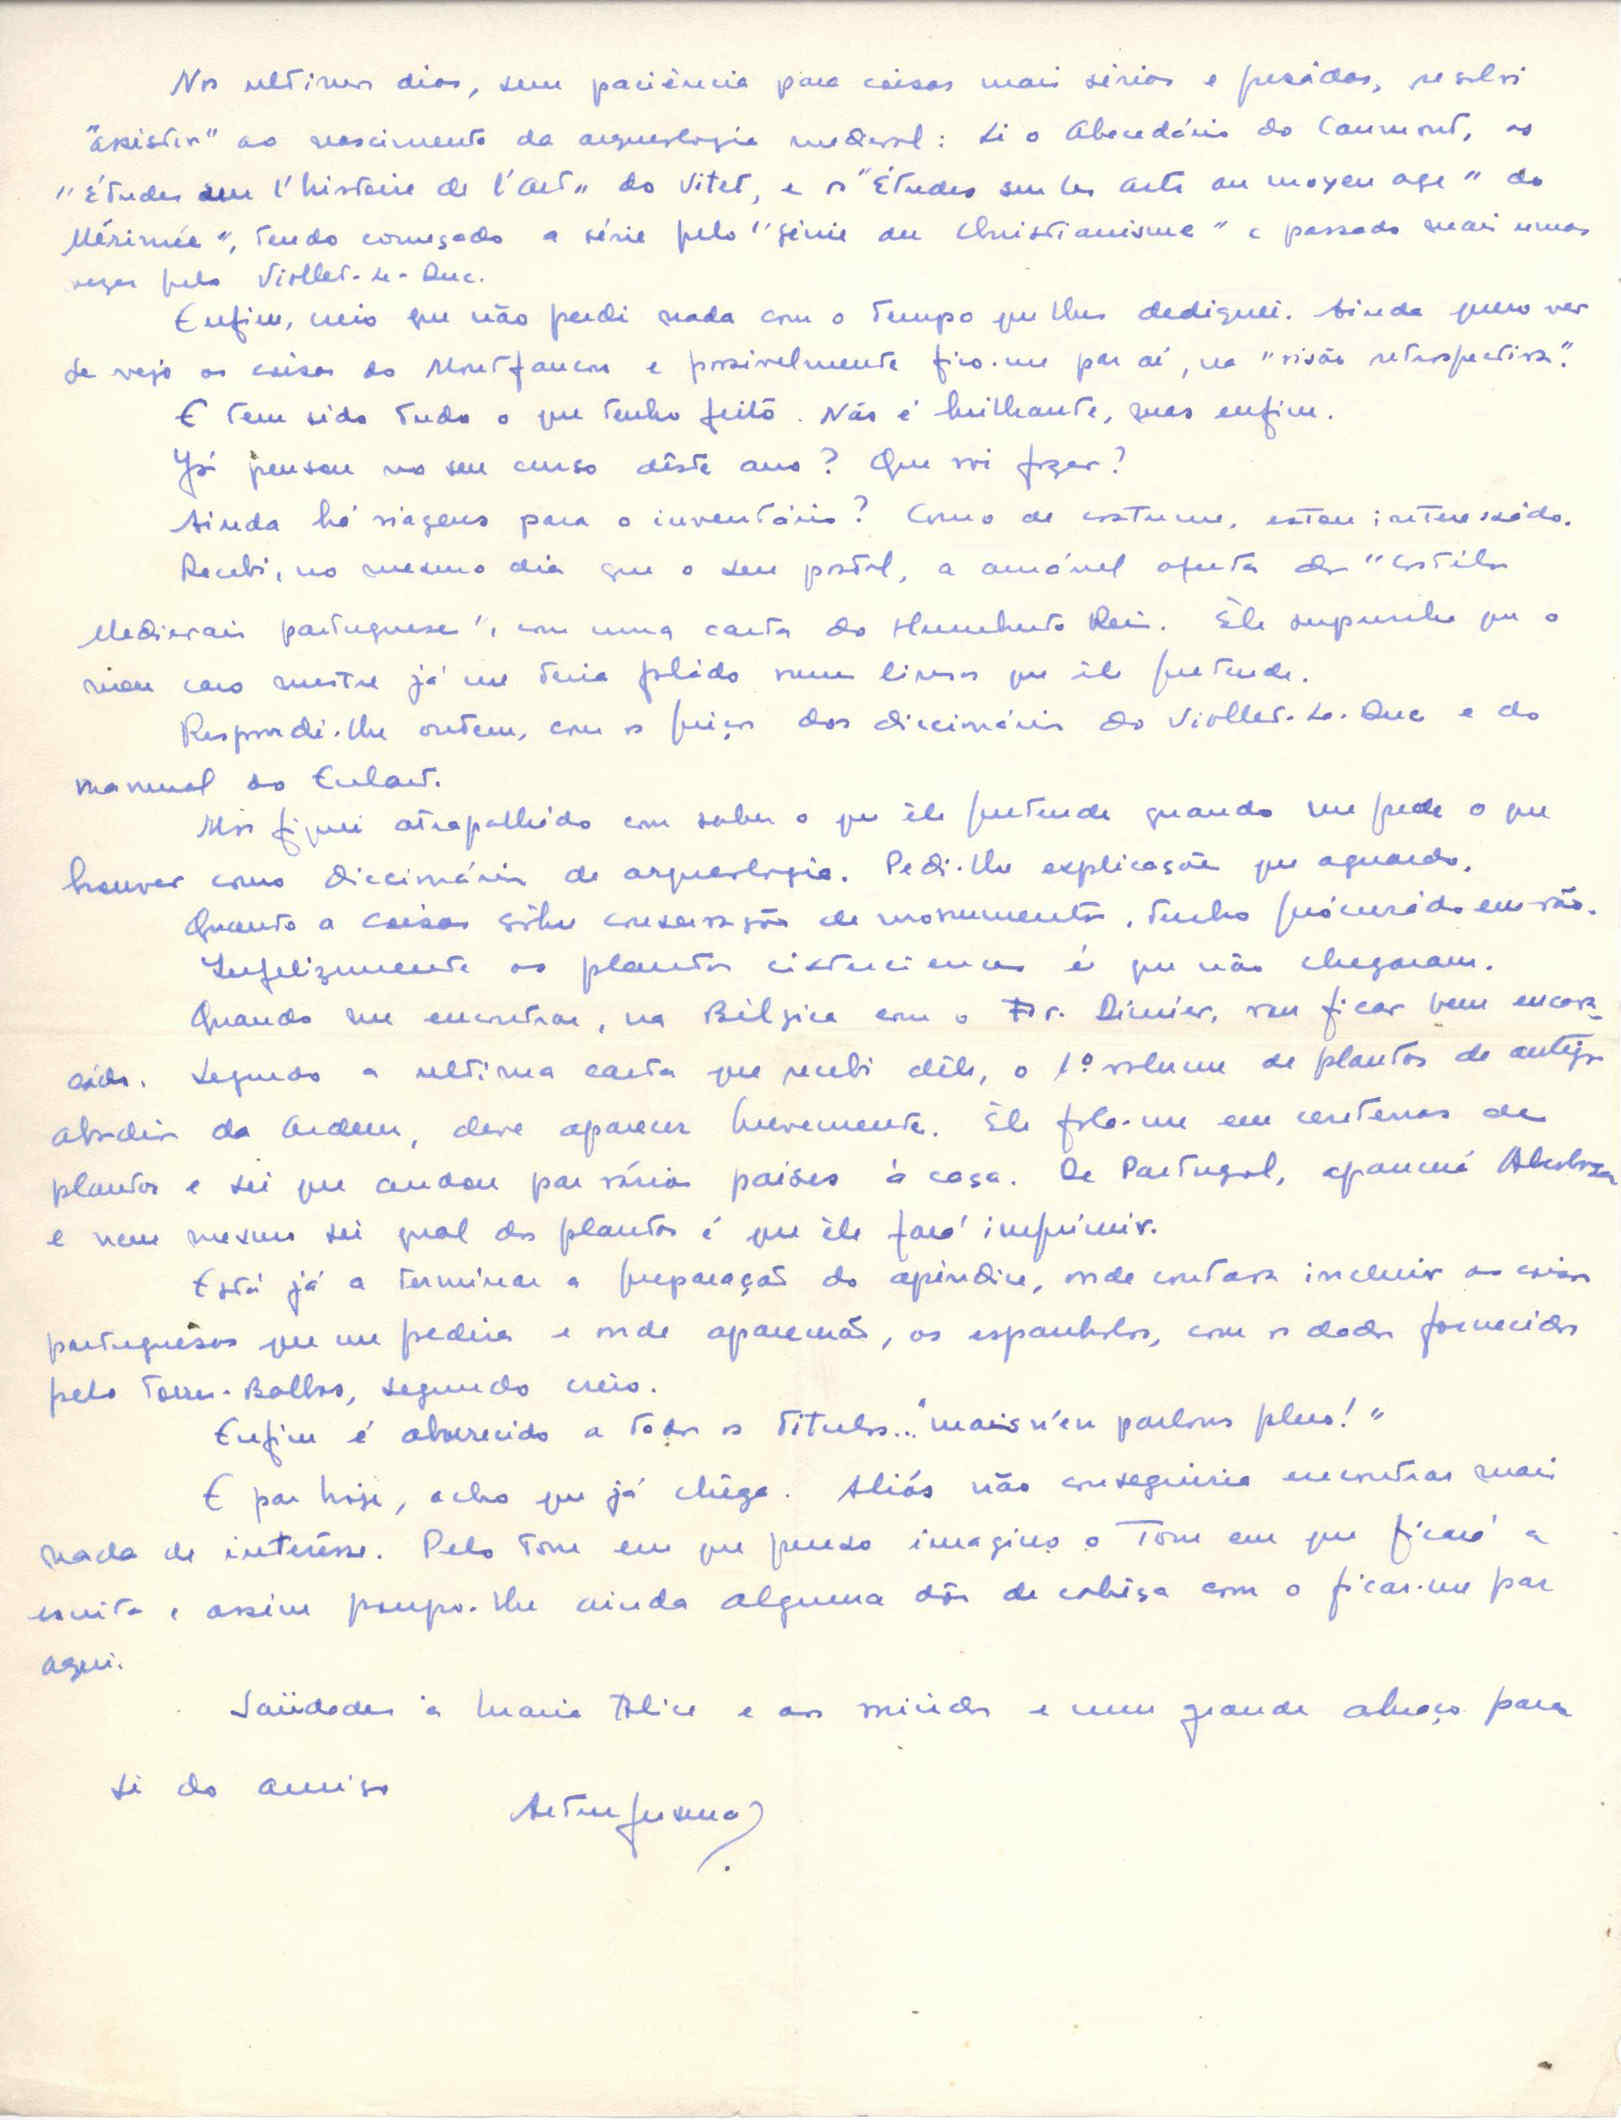 Nos ultimos dias, sem paciência para coisas mais sérias e pesadas, resolvi
"assistir" ao nascimento da arqueologia medieval: Li o Abecedário do Caumont, os
"Études sur l'histoire de l'Art" do Vitet, e os "Études sur les arts au moyen age" do
Mérimée", tendo começado a série pelo "génie du Christianisme" e passado mais umas
vezes pelo Viollet-le-Duc.
Enfim, creio que não perdi nada com o tempo que lhes dediquei. Ainda quero ver
se vejo as coisas do Montfaucon e possivelmente fico-me por aí, na "visão retrospectiva".
E tem sido tudo o que tenho feito. Não é brilhante, mas enfim.
Já pensou no seu curso dêste ano? Que vai fazer?
Ainda há viagens para o inventário? Como de costume, estou interessado.
Recebi, no mesmo dia que o seu postal, a amável oferta dos "Castelos
Medievais portugueses", com uma carta do Humberto Reis. Êle supunha que o
meu caro mestre já me teria falado nuns livros que êle pretende.
Respondi-lhe ontem, com os preços dos diccionários do Viollet-Le-Duc e do
manual do Enlart.
Mas fiquei atrapalhado com saber o que êle pretende quando me pede o que
houver como diccionários de arqueologia. Pedi-lhe explicações que aguardo.
Quanto a coisas sôbre conservação de monumentos, tenho procurado em vão.
Infelizmente as plantas cistercienses é que não chegaram.
Quando me encontrar, na Bélgica com o Fr. Dimier, vou ficar bem encava-
cado. Segundo a ultima carta que recebi dêle, o 1º volume de plantas de antigas
abadias da Ordem, deve aparecer brevemente. Êle fala-me em centenas de
plantas e sei que andou por vários países à caça. De Portugal, aparecerá Alcobaça
e nem mesmo sei qual das plantas é que êle fará imprimir.
Está já a terminar a preparação do apêndice, onde contava incluir as coisas
portuguesas que me pedira e onde aparecerão, as espanholas, com os dados fornecidos
pelo Torres-Balbas, segundo creio.
Enfim é aborrecido a todos os titulos... "mais n'en parlons plus!"
E por hoje, acho que já chega. Aliás não conseguiria encontrar mais
nada de interêsse. Pelo tom em que penso imagino o tom em que ficará a
escrita e assim poupo-lhe ainda alguma dôr de cabêça com o ficar-me por
aqui.
Saüdades à Maria Alice e aos miúdos e um grande abraço para
si do amigo
Artur Gusmão